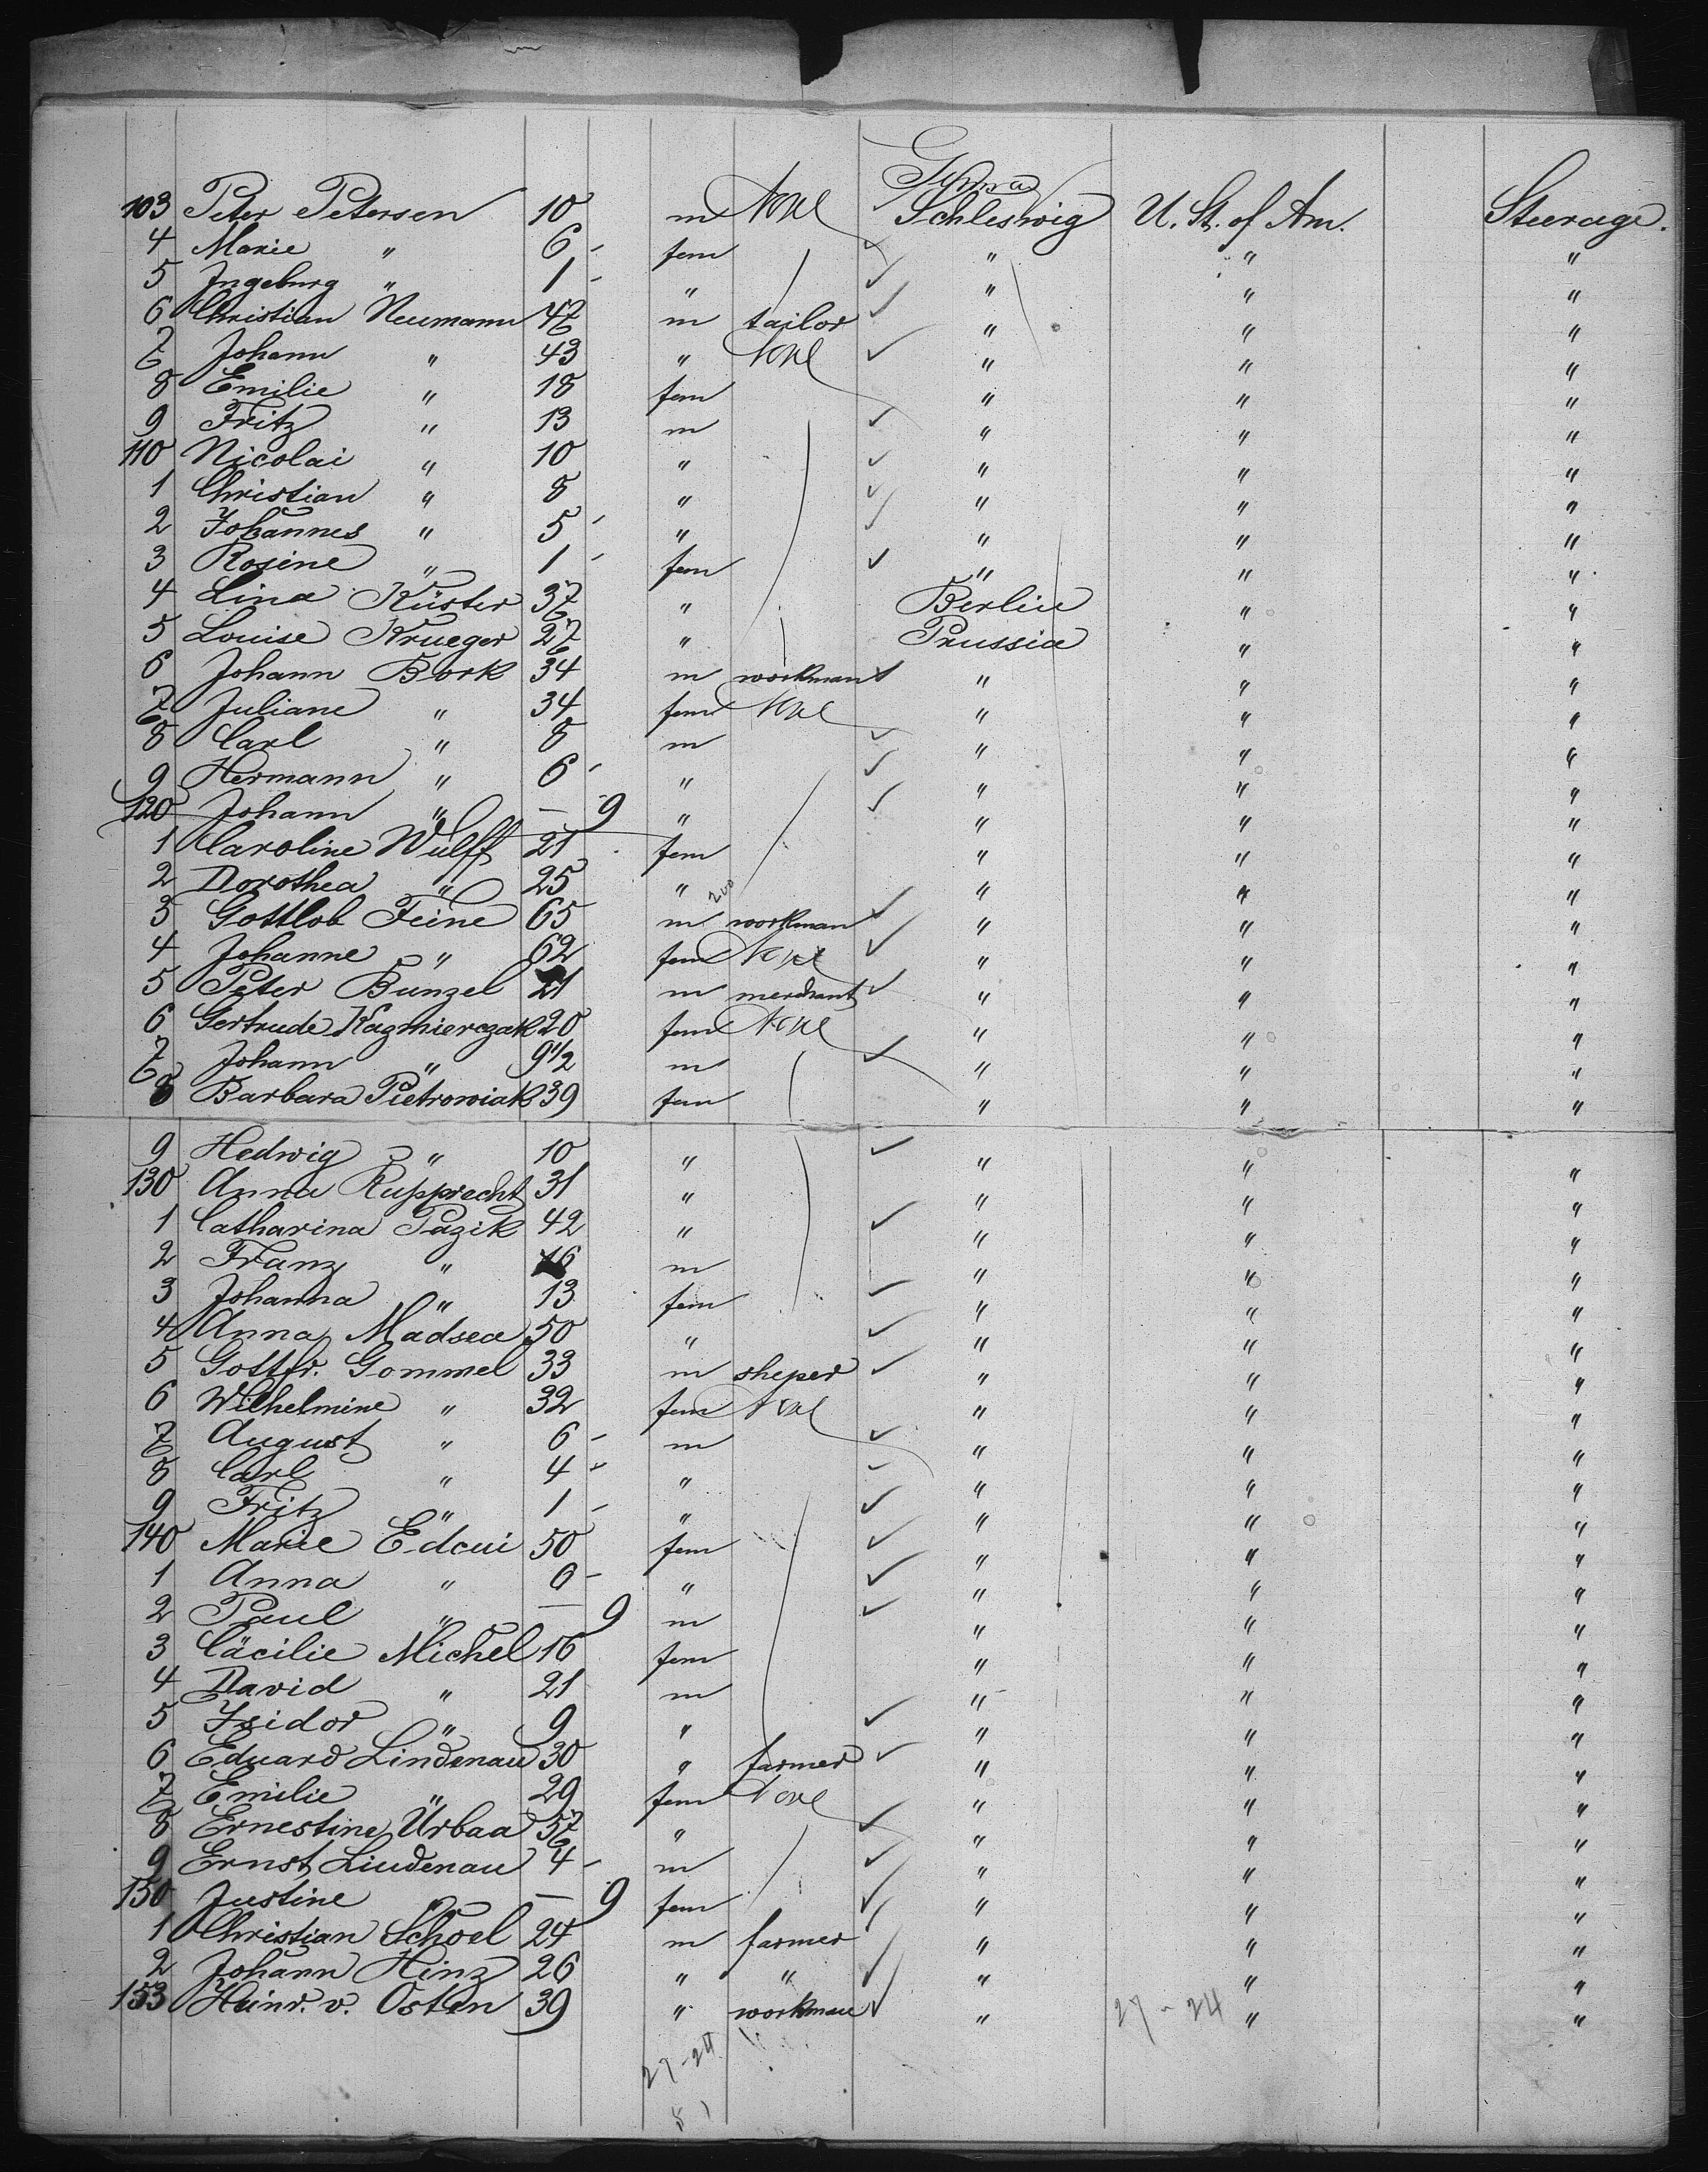 Schleswig
103 Peter Petersen 10 m None Schleswig U. St. of Am. Steerage.
4 Marie " 6 - fem " " "
5 Ingeburg " 1 - " " " "
6 Christian Neumann 47 m tailor " " "
7 Johann " 43 " None " " "
8 Emilie " 18 fem " " "
9 Fritz " 13 m " " "
110 Nicolai " 10 " " " "
1 Christian " 8 " " " "
2 Johannes " 5 - " " " "
3 Rosine " 1 - fem " " "
4 Lina Küster 37 " Berlin " "
5 Louise Krueger 27 " Prussia " "
6 Johann Bork 34 m workman " " "
7 Juliane " 34 fem None " " "
8 Carl " 8 m " " "
9 Hermann " 6 - " " " "
120 Johann " — 9 " " " "
1 Caroline Wulff 21 fem " " "
2 Dorothea " 25 " " " "
3 Gottlob Feine 65 m workman " " "
4 Johanne " 62 fem None " " "
5 Peter Bunzel 21 m merchant " " "
6 Gertrude Kazmierczak 20 fem None " " "
7 Johann " 9 1/2 m " " "
8 Barbara Pietrowiak 39 fem " " "
9 Hedwig " 10 " " " "
130 Anna Rupprecht 31 " " " "
1 Catharina Pazik 42 " " " "
2 Franz " 16 m " " "
3 Johanna " 13 fem " " "
4 Anna Madsea 50 " " " "
5 Gottfr. Gommel 33 m sheper " " "
6 Wilhelmine " 32 fem None " " "
7 August " 6 - m " " "
8 Carl " 4 - " " " "
9 Fritz " 1 - " " " "
140 Marie Edcui 50 fem " " "
1 Anna " 6 - " " " "
2 Paul " — 9 m " " "
3 Cäcilie Michel 16 fem " " "
4 David " 21 m " " "
5 Isidor " 9 " " " "
6 Eduard Lindenau 30 " farmer " " "
7 Emilie " 29 fem None " " "
8 Ernestine Urbaa 57 " " " "
9 Ernst Lindenau 4 - m " " "
150 Justine " — 9 fem " " "
1 Christian Schoel 24 m farmer " " "
2 Johann Hinz 26 " " " " "
153 Heinr. v. Osten 39 " workman " " "
27-24
27-24